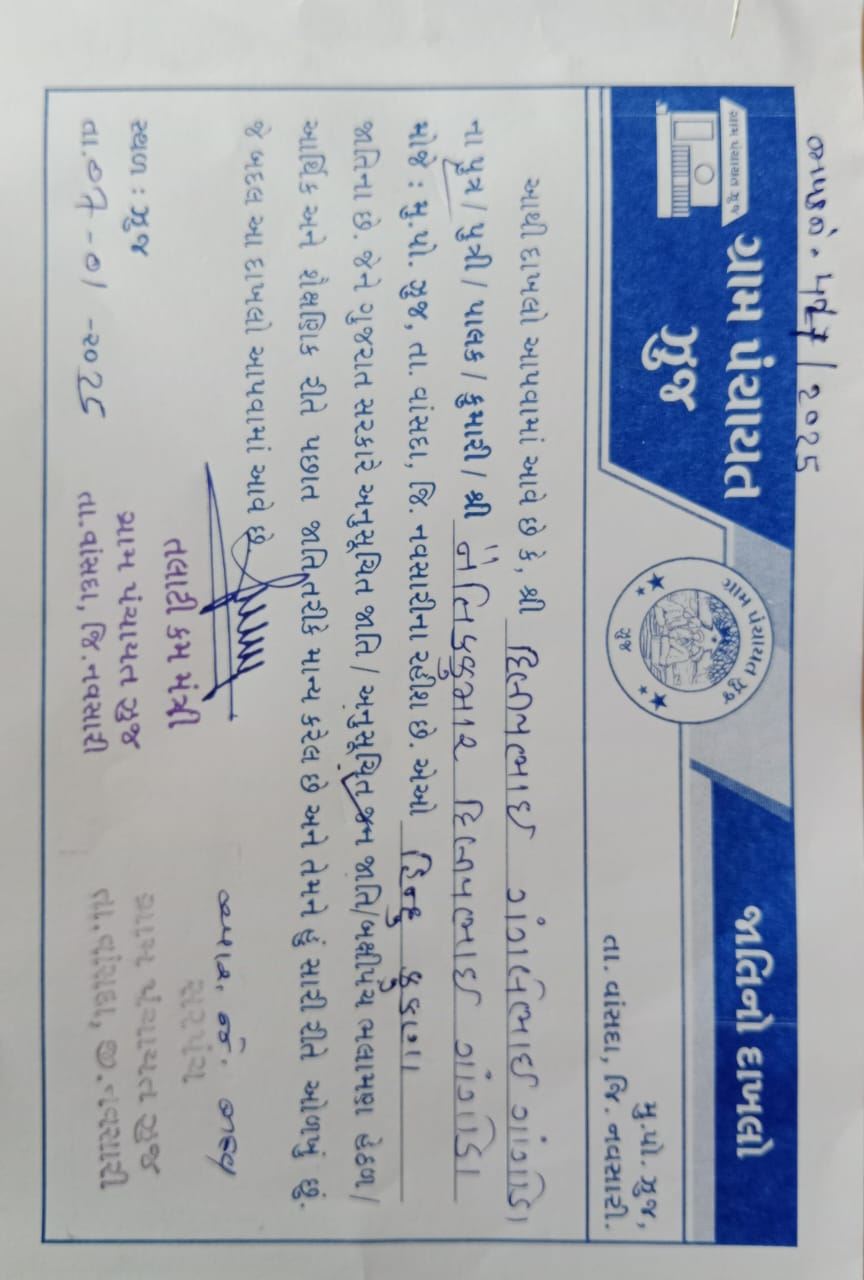 ગ્રામ પંચાયત ઝુજ
ગ્રામ પંચાયત
ઝુજ
ગ્રામ પંચાયત ઝુજ
ઝુજ
જાતિનો દાખલો
મુ.પો. ઝુજ,
તા. વાંસદા, જિ. નવસારી.
આથી દાખલો આપવામાં આવે છે કે, શ્રી દિલીપભાઈ ગાંગાભાઈ
ના પુત્ર / પુત્રી / પાલક / કુમારી / શ્રી નૈતિકકુમાર દિલીપભાઈ
મોજે : મુ.પો. ઝુજ, તા. વાંસદા, જિ. નવસારીના રહીશ છે. એઓ હિન્દુ કુંકણા
જાતિના છે. જેને ગુજરાત સરકારે અનુસૂચિત જાતિ / અનુસૂચિત જન જાતિ/બક્ષીપંચ ભલામણ હેઠળ /
આર્થિક અને શૈક્ષણિક રીતે પછાત જાતિ તરીકે માન્ય કરેલ છે અને તેમને હું સારી રીતે ઓળખું છું.
જે બદલ આ દાખલો આપવામાં આવે છે.
સ્થળ : ઝુજ
તા. ૦7-01-૨૦25
તલાટી કમ મંત્રી
ગ્રામ પંચાયત ઝુજ
તા.વાંસદા, જિ.નવસારી
સરપંચ
ગ્રામ પંચાયત ઝુજ
તા.વાંસદા, જી.નવસારી